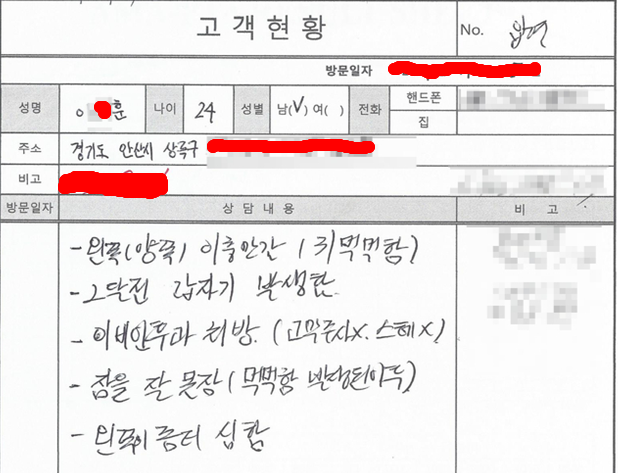 고객현황
No.
방문일자
성명 이 훈 나이 24 성별 남(V) 여( ) 전화 핸드폰
집
주소 경기도 안산시 상록구
비고
방문일자 상담내용 비고
- 왼쪽(양쪽) 이충만감 / 귀먹먹함)
- 2달전 갑자기 발생함.
- 이비인후과 처방. (고막주사x. 스테x)
- 잠을 잘 못잠 (먹먹함 발생된이후)
- 왼쪽이 좀더 심함